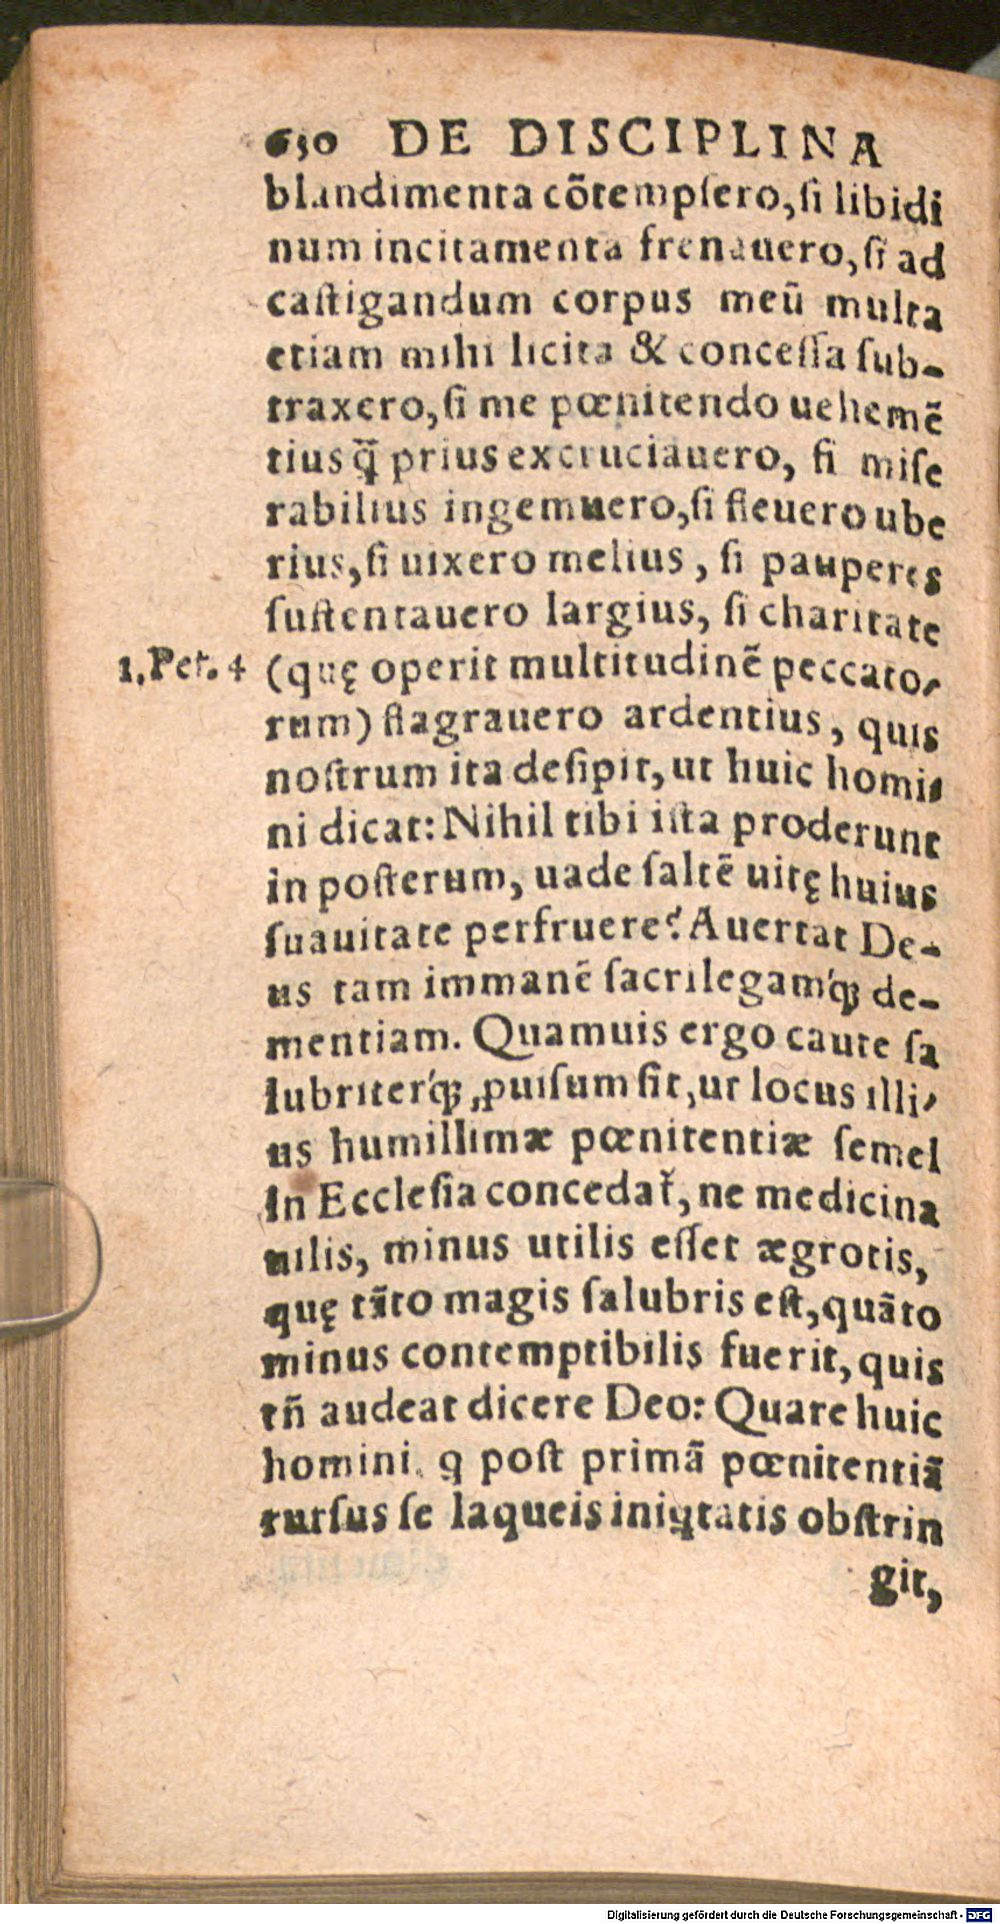 630 DE DISCIPLINA
blandimenta cõtempſero, ſi libidi
num incitamenta frenauero, ſi ad
caſtigandum corpus meũ multa
etiam mihi licita & conceſſa ſub-
traxero, ſi me pœnitendo uehemẽ
tius q̃ prius excruciauero, ſi miſe
rabilius ingemuero, ſi fleuero ube
rius, ſi uixero melius, ſi pauperes
ſuſtentauero largius, ſi charitate
1. Pet. 4 (quę operit multitudinẽ peccato-
rum) flagrauero ardentius, quis
noſtrum ita deſipit, ut huic homi-
ni dicat: Nihil tibi iſta proderunt
in poſterum, uade ſaltẽ uitę huius
ſuauitate perfruere? Auertat De-
us tam immanẽ ſacrilegamq́; de-
mentiam. Quamuis ergo caute ſa
lubriterq́; ꝓuiſum ſit, ut locus illi-
us humillimæ pœnitentiæ ſemel
in Eccleſia concedat᷑, ne medicina
uilis, minus utilis eſſet ægrotis,
quę tãto magis ſalubris eſt, quãto
minus contemptibilis fuerit, quis
tñ audeat dicere Deo: Quare huic
homini, ꝗ poſt primã pœnitentiã
rurſus ſe laqueis iniꝗtatis obſtrin
git,
Digitalisierung gefördert durch die Deutsche Forschungsgemeinschaft - DFG